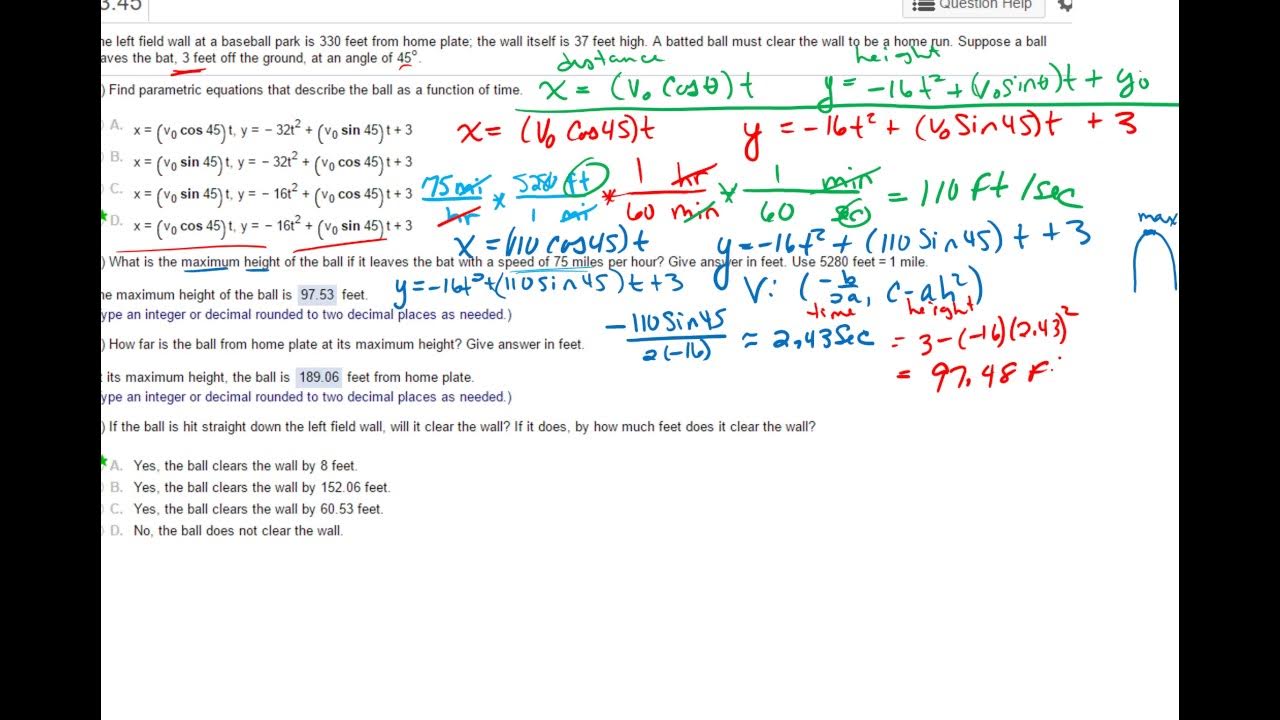 3.45
Question Help
he left field wall at a baseball park is 330 feet from home plate; the wall itself is 37 feet high. A batted ball must clear the wall to be a home run. Suppose a ball
aves the bat, 3 feet off the ground, at an angle of 45°.
distance height
) Find parametric equations that describe the ball as a function of time.
x = (v₀ cosθ) t y = -16t² + (v₀ sinθ)t + y₀
A. x = (v₀ cos 45) t, y = − 32t² + (v₀ sin 45) t + 3
x = (v₀ cos45)t y = -16t² + (v₀ sin45)t + 3
B. x = (v₀ sin 45) t, y = − 32t² + (v₀ cos 45) t + 3
C. x = (v₀ sin 45) t, y = − 16t² + (v₀ cos 45) t + 3
75 mi/hr * 5280 ft/1 mi * 1 hr/60 min * 1 min/60 sec = 110 ft/sec
D. x = (v₀ cos 45) t, y = − 16t² + (v₀ sin 45) t + 3
max
x = (110 cos45)t y = -16t² + (110 sin45)t + 3
) What is the maximum height of the ball if it leaves the bat with a speed of 75 miles per hour? Give answer in feet. Use 5280 feet = 1 mile.
y = -16t² + (110 sin 45)t + 3 V: (-b/2a, c-ah²)
he maximum height of the ball is 97.53 feet.
time height
ype an integer or decimal rounded to two decimal places as needed.)
-110 sin45/2(-16) ≈ 2.43 sec = 3-(-16)(2.43)²
) How far is the ball from home plate at its maximum height? Give answer in feet.
= 97.48 F
its maximum height, the ball is 189.06 feet from home plate.
ype an integer or decimal rounded to two decimal places as needed.)
) If the ball is hit straight down the left field wall, will it clear the wall? If it does, by how much feet does it clear the wall?
A. Yes, the ball clears the wall by 8 feet.
B. Yes, the ball clears the wall by 152.06 feet.
C. Yes, the ball clears the wall by 60.53 feet.
D. No, the ball does not clear the wall.